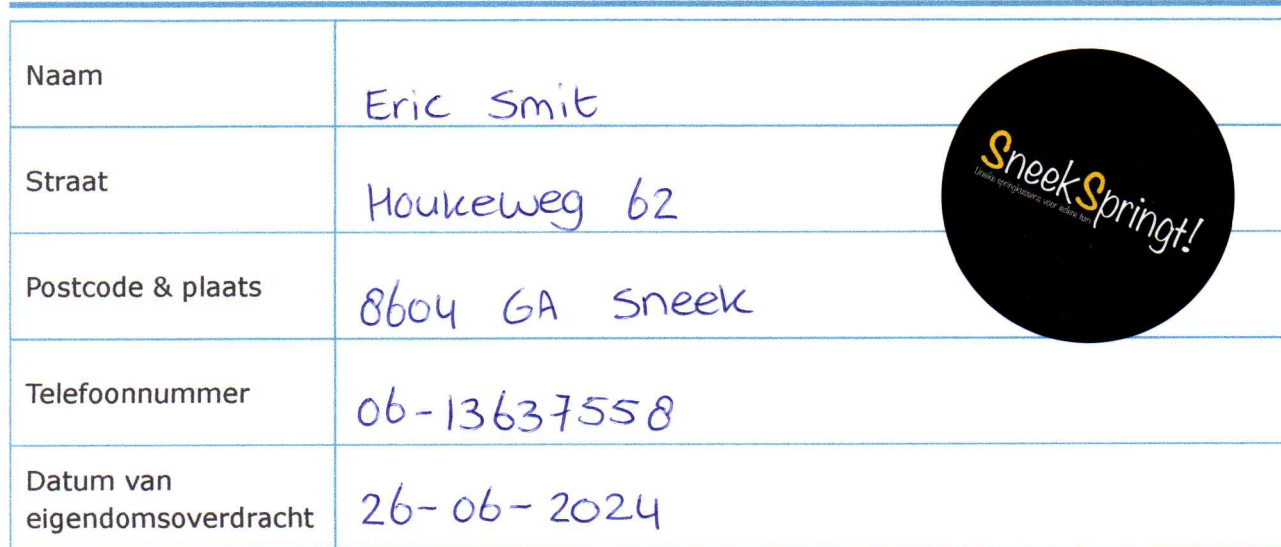 Naam
Eric Smit
Straat
Houkeweg 62
Postcode & plaats
8604 GA Sneek
Telefoonnummer
06-13637558
Datum van
eigendomsoverdracht
26-06-2024
SneekSpringt!
Unieke springkussens voor iedere tuin